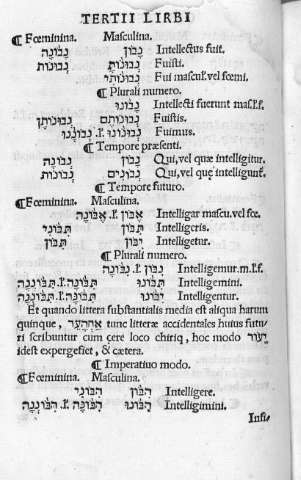 TERTII LIRBI
¶ Fœminina. Masculina.
נָבוֹנָה נָבוֹן Intellectus fuit.
נְבוּנוֹת נְבוּנוֹתָ Fuisti.
נְבוּנוֹתִי Fui mascul. vel fœmi.
¶ Plurali numero.
נָבוֹנוּ Intellecti fuerunt mas. l. f.
נְבוּנוֹתֶן נְבוּנוֹתֶם Fuistis.
נְבוּנוֹנוּ Fuimus.
¶ Tempore præsenti.
נְבוֹנָה נָבוֹן Qui, vel quæ intelligitur.
נְבוֹנוֹת נְבוֹנִים Qui, vel quæ intelligunt.
¶ Tempore futuro.
¶ Fœminina. Masculina.
אִבּוֹן Intelligar mascu. vel fœ.
תִּבּוֹנִי תִּבּוֹן Intelligeris.
תִּבּוֹן יִבּוֹן Intelligetur.
¶ Plurali numero.
נִבּוֹן Intelligemur. m. l. f.
תִּבּוֹנוּ Intelligemini.
יִבּוֹנוּ Intelligentur.
Et quando littera substantialis media est aliqua harum
quinque, אחהער tunc litteræ accidentales huius futu
ri scribuntur cum çere loco chiriq, hoc modo יֵעוֹר
idest expergefiet, & cætera.
¶ Imperativo modo.
¶ Fœminina. Masculina.
הִבּוֹנִי הִבּוֹן Intelligere.
הִבּוֹנוּ Intelligimini.
Infi-